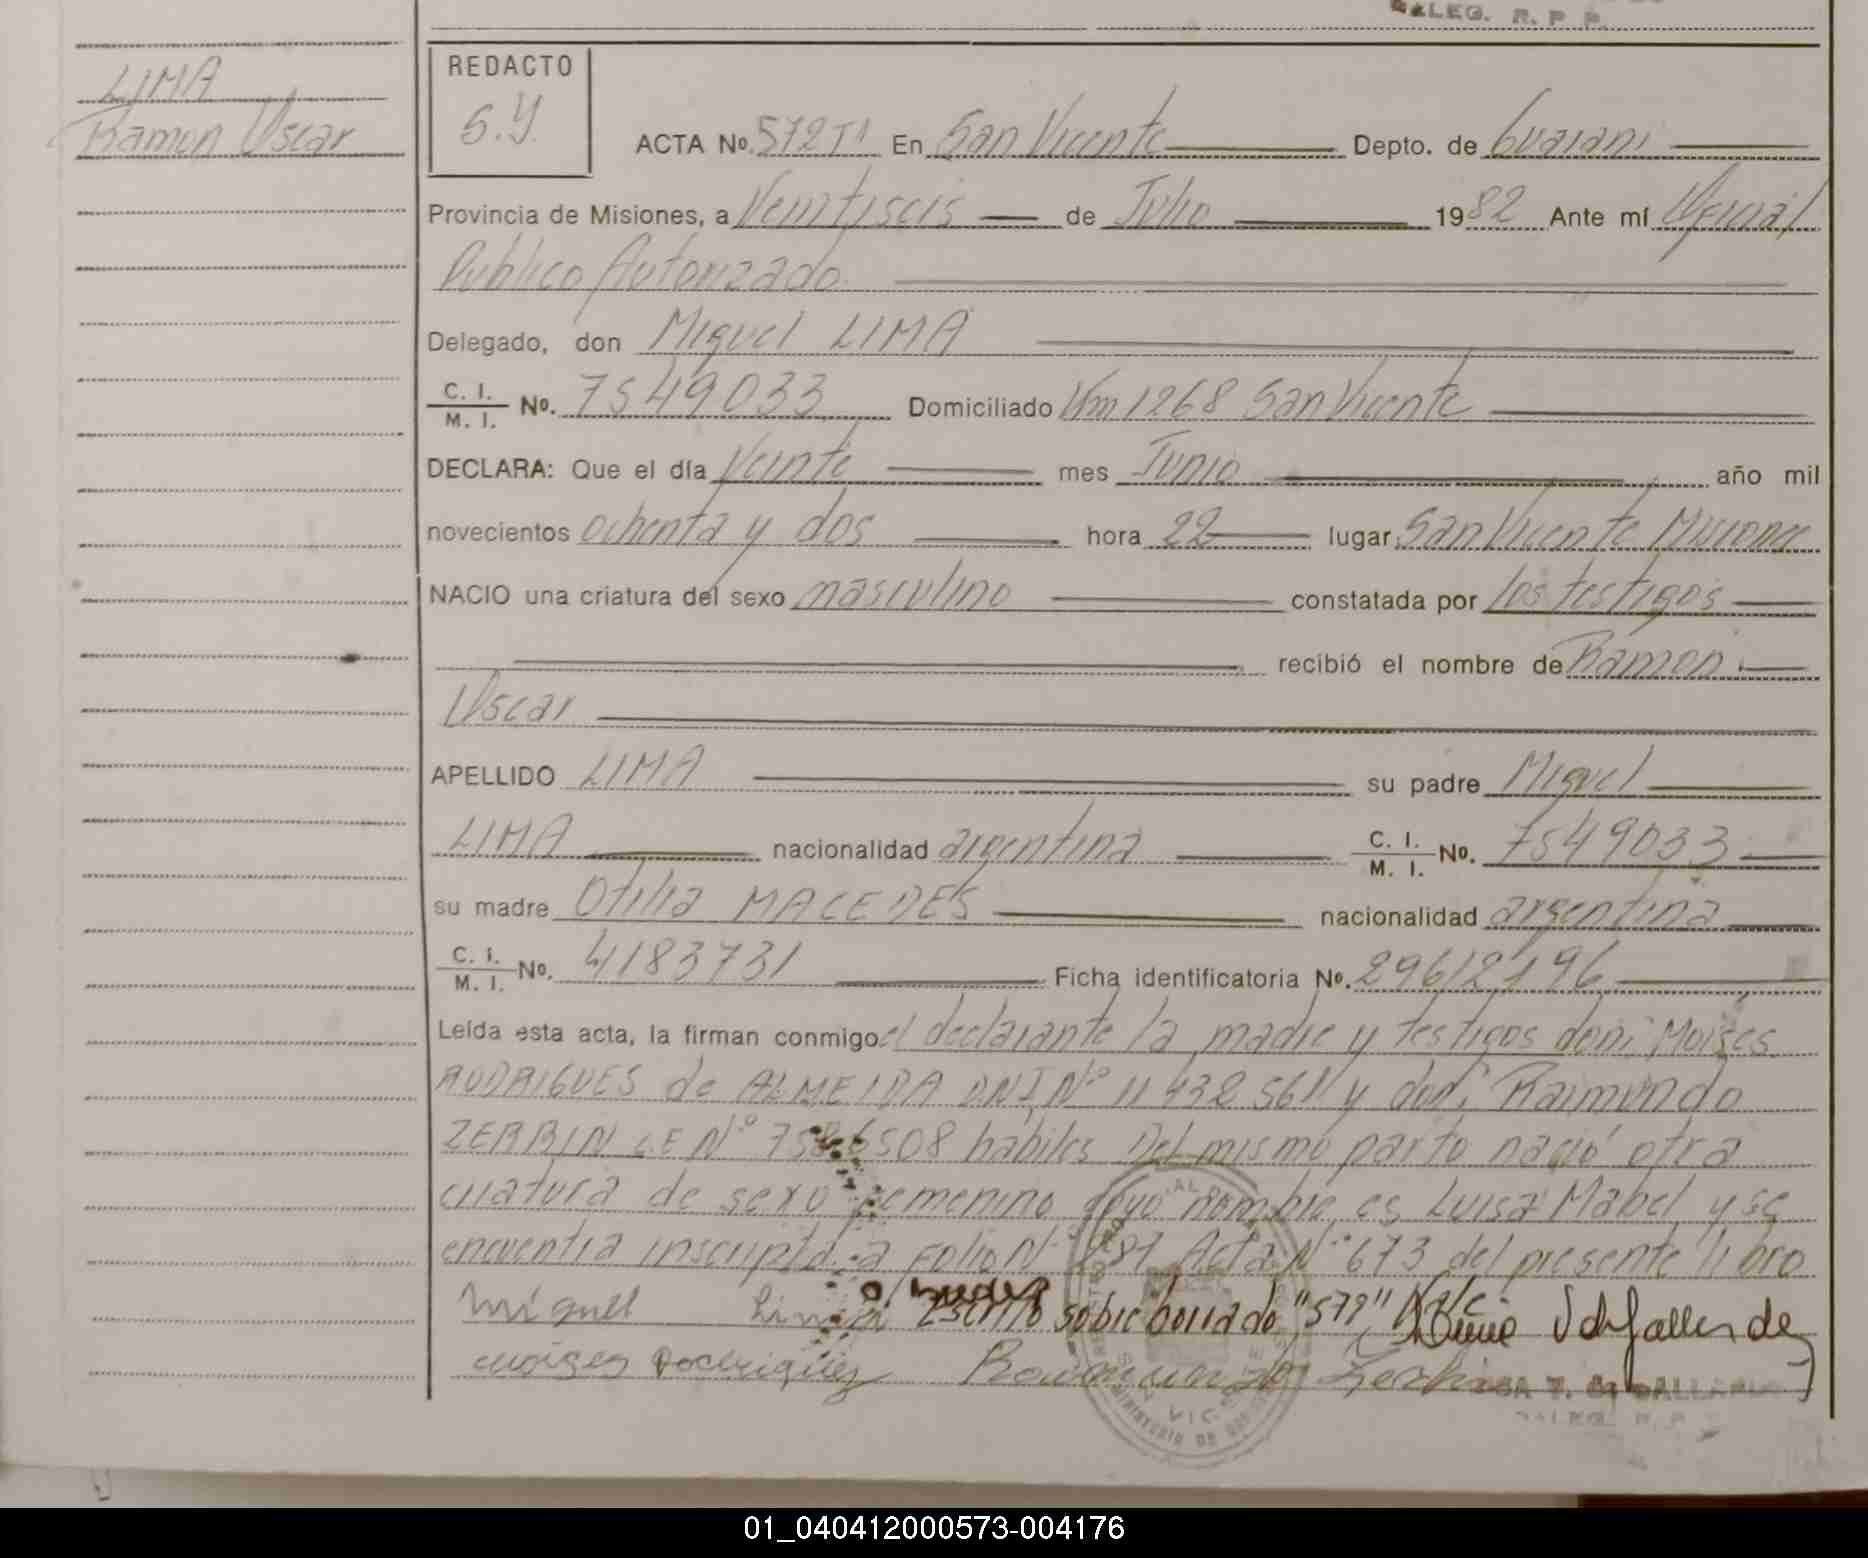 DALEG. R. P. P.
LIMA
Ramon Oscar
REDACTO
S.Y.
ACTA No. 572 T1 En San Vicente Depto. de Guarani
Provincia de Misiones, a Veintiseis de Julio 1982 Ante mí Oficial
Publico Autorizado
Delegado, don Miguel LIMA
C. I. / M. I. No. 7549033 Domiciliado Km 1268 San Vicente
DECLARA: Que el día Veinte mes Junio año mil
novecientos ochenta y dos hora 22 lugar San Vicente Misiones
NACIO una criatura del sexo masculino constatada por los testigos
recibió el nombre de Ramon
Oscar
APELLIDO LIMA su padre Miguel
LIMA nacionalidad argentina C. I. / M. I. No. 7549033
su madre Otilia MACEDES nacionalidad argentina
C. I. / M. I. No. 4183731 Ficha identificatoria No. 296/2196
Leída esta acta, la firman conmigo el declarante la madre y testigos don: Moises
RODRIGUES de ALMEIDA DNI Nº 11 432 561 y don: Raimundo
ZERBIN L.E Nº 7586508 habiles Del mismo parto nació otra
criatura de sexo femenino cuyo nombre es Luisa Mabel y se
encuentra inscripta a Folio Nº Acta Nº 673 del presente libro
Miguel Lima Escrito sobre borrado "572" Vale
Moises Rodriguez Raimundo Zerbin
01_040412000573-004176